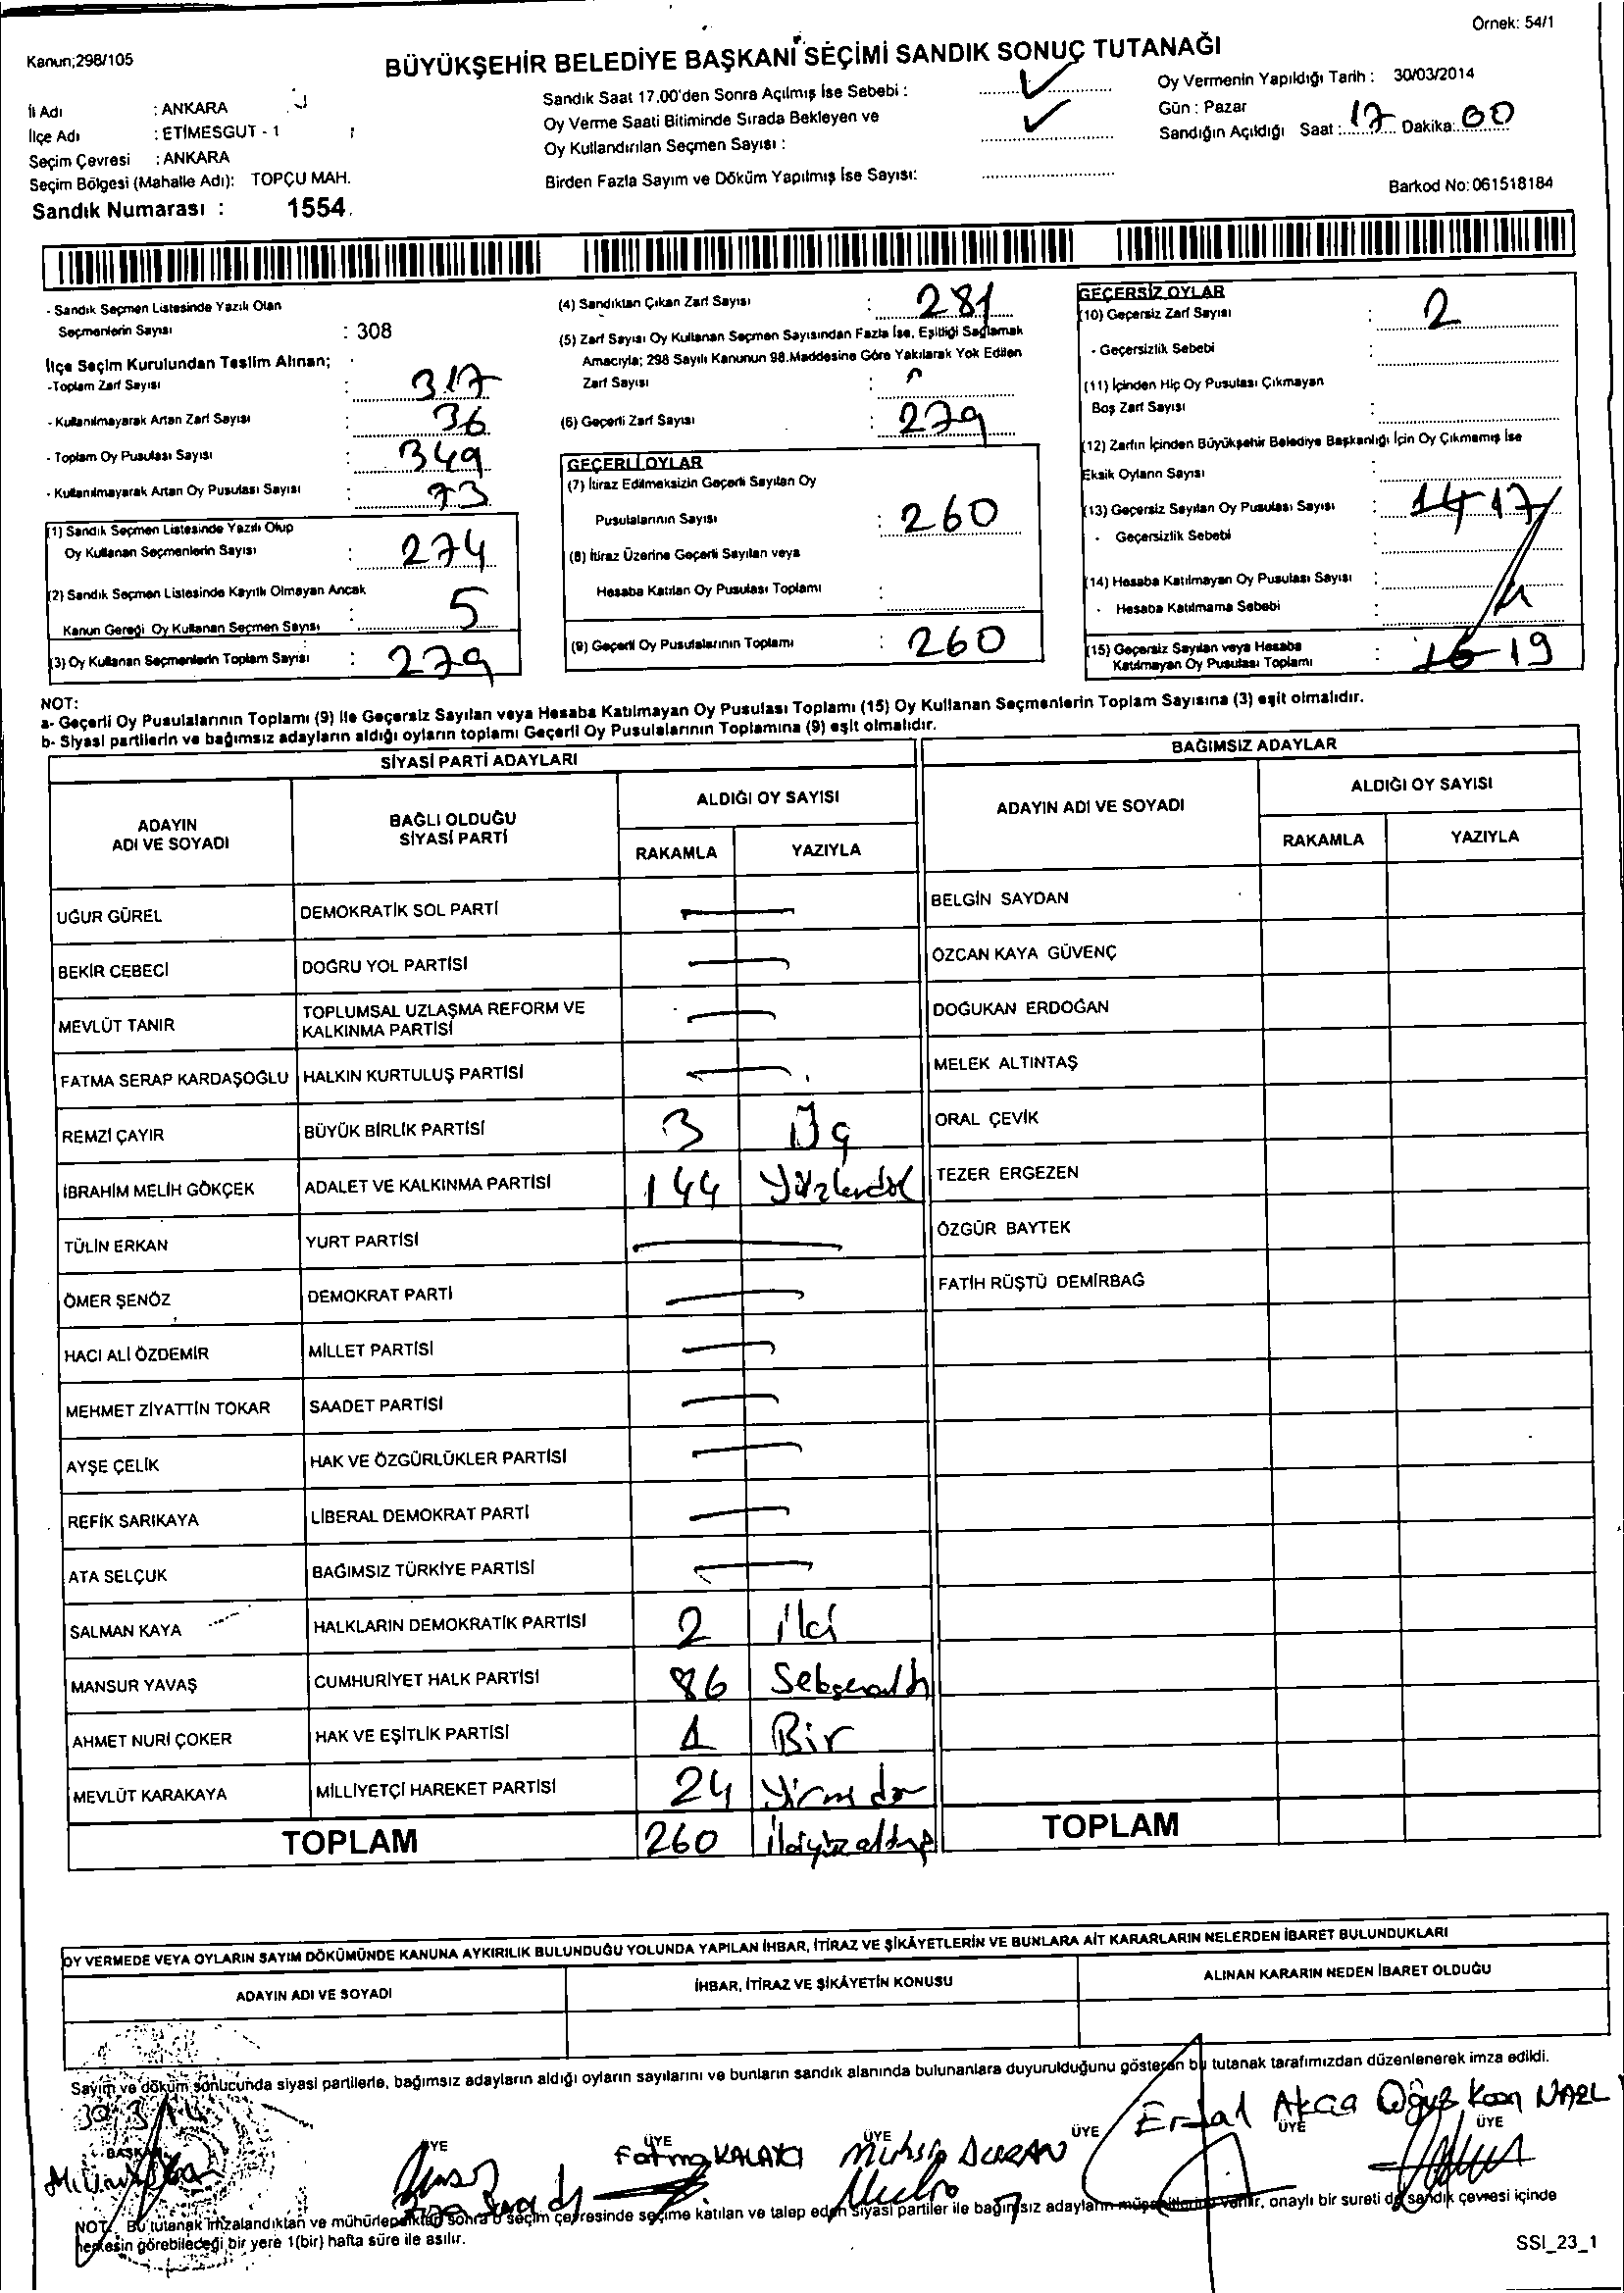 Örnek: 54/1
Kanun;298/105
BÜYÜKŞEHİR BELEDİYE BAŞKANI SEÇİMİ SANDIK SONUÇ TUTANAĞI
İl Adı : ANKARA
İlçe Adı : ETİMESGUT - 1
Seçim Çevresi : ANKARA
Seçim Bölgesi (Mahalle Adı): TOPÇU MAH.
Sandık Numarası : 1554
Sandık Saat 17.00'den Sonra Açılmış İse Sebebi :
Oy Verme Saati Bitiminde Sırada Bekleyen ve
Oy Kullandırılan Seçmen Sayısı :
Birden Fazla Sayım ve Döküm Yapılmış İse Sayısı:
Oy Vermenin Yapıldığı Tarih : 30/03/2014
Gün : Pazar
Sandığın Açıldığı Saat : 17 Dakika: 00
Barkod No: 061518184
- Sandık Seçmen Listesinde Yazılı Olan
Seçmenlerin Sayısı : 308
İlçe Seçim Kurulundan Teslim Alınan;
-Toplam Zarf Sayısı : 317
- Kullanılmayarak Artan Zarf Sayısı : 36
- Toplam Oy Pusulası Sayısı : 349
- Kullanılmayarak Artan Oy Pusulası Sayısı : 73
(1) Sandık Seçmen Listesinde Yazılı Olup
Oy Kullanan Seçmenlerin Sayısı : 274
(2) Sandık Seçmen Listesinde Kayıtlı Olmayan Ancak
Kanun Gereği Oy Kullanan Seçmen Sayısı : 5
(3) Oy Kullanan Seçmenlerin Toplam Sayısı : 279
(4) Sandıktan Çıkan Zarf Sayısı : 281
(5) Zarf Sayısı Oy Kullanan Seçmen Sayısından Fazla İse, Eşitliği Sağlamak
Amacıyla; 298 Sayılı Kanunun 98.Maddesine Göre Yakılarak Yok Edilen
Zarf Sayısı :
(6) Geçerli Zarf Sayısı : 279
GEÇERLİ OYLAR
(7) İtiraz Edilmeksizin Geçerli Sayılan Oy
Pusulalarının Sayısı : 260
(8) İtiraz Üzerine Geçerli Sayılan veya
Hesaba Katılan Oy Pusulası Toplamı :
(9) Geçerli Oy Pusulalarının Toplamı : 260
GEÇERSİZ OYLAR
(10) Geçersiz Zarf Sayısı : 2
- Geçersizlik Sebebi :
(11) İçinden Hiç Oy Pusulası Çıkmayan
Boş Zarf Sayısı :
(12) Zarfın İçinden Büyükşehir Belediye Başkanlığı İçin Oy Çıkmamış İse
Eksik Oyların Sayısı :
(13) Geçersiz Sayılan Oy Pusulası Sayısı : 14 17
- Geçersizlik Sebebi :
(14) Hesaba Katılmayan Oy Pusulası Sayısı :
- Hesaba Katılmama Sebebi :
(15) Geçersiz Sayılan veya Hesaba
Katılmayan Oy Pusulası Toplamı : 16 19
NOT:
a- Geçerli Oy Pusulalarının Toplamı (9) ile Geçersiz Sayılan veya Hesaba Katılmayan Oy Pusulası Toplamı (15) Oy Kullanan Seçmenlerin Toplam Sayısına (3) eşit olmalıdır.
b- Siyasi partilerin ve bağımsız adayların aldığı oyların toplamı Geçerli Oy Pusulalarının Toplamına (9) eşit olmalıdır.
SİYASİ PARTİ ADAYLARI
ADAYIN
ADI VE SOYADI
BAĞLI OLDUĞU
SİYASİ PARTİ
ALDIĞI OY SAYISI
RAKAMLA YAZIYLA
UĞUR GÜREL DEMOKRATİK SOL PARTİ
BEKİR CEBECİ DOĞRU YOL PARTİSİ
MEVLÜT TANIR TOPLUMSAL UZLAŞMA REFORM VE
KALKINMA PARTİSİ
FATMA SERAP KARDAŞOĞLU HALKIN KURTULUŞ PARTİSİ
REMZİ ÇAYIR BÜYÜK BİRLİK PARTİSİ 3 Üç
İBRAHİM MELİH GÖKÇEK ADALET VE KALKINMA PARTİSİ 144
TÜLİN ERKAN YURT PARTİSİ
ÖMER ŞENÖZ DEMOKRAT PARTİ
HACI ALİ ÖZDEMİR MİLLET PARTİSİ
MEHMET ZİYATTİN TOKAR SAADET PARTİSİ
AYŞE ÇELİK HAK VE ÖZGÜRLÜKLER PARTİSİ
REFİK SARIKAYA LİBERAL DEMOKRAT PARTİ
ATA SELÇUK BAĞIMSIZ TÜRKİYE PARTİSİ
SALMAN KAYA HALKLARIN DEMOKRATİK PARTİSİ 2 iki
MANSUR YAVAŞ CUMHURİYET HALK PARTİSİ 86 Seksenaltı
AHMET NURİ ÇOKER HAK VE EŞİTLİK PARTİSİ 1 Bir
MEVLÜT KARAKAYA MİLLİYETÇİ HAREKET PARTİSİ 24
TOPLAM 260 ikiyüzaltmış
BAĞIMSIZ ADAYLAR
ADAYIN ADI VE SOYADI
ALDIĞI OY SAYISI
RAKAMLA YAZIYLA
BELGİN SAYDAN
ÖZCAN KAYA GÜVENÇ
DOĞUKAN ERDOĞAN
MELEK ALTINTAŞ
ORAL ÇEVİK
TEZER ERGEZEN
ÖZGÜR BAYTEK
FATİH RÜŞTÜ DEMİRBAĞ
TOPLAM
OY VERMEDE VEYA OYLARIN SAYIM DÖKÜMÜNDE KANUNA AYKIRILIK BULUNDUĞU YOLUNDA YAPILAN İHBAR, İTİRAZ VE ŞİKÂYETLERİN VE BUNLARA AİT KARARLARIN NELERDEN İBARET BULUNDUKLARI
ADAYIN ADI VE SOYADI
İHBAR, İTİRAZ VE ŞİKÂYETİN KONUSU
ALINAN KARARIN NEDEN İBARET OLDUĞU
Sayım ve döküm sonucunda siyasi partilerle, bağımsız adayların aldığı oyların sayılarını ve bunların sandık alanında bulunanlara duyurulduğunu gösteren bu tutanak tarafımızdan düzenlenerek imza edildi.
30.3.14
BAŞKAN ÜYE ÜYE ÜYE ÜYE ÜYE ÜYE
Fatma KALAYCI Muhsin DURAN Erdal Akca Oğuz Kaan
NOT: Bu tutanak imzalandıktan ve mühürlendikten sonra o seçim çevresinde seçime katılan ve talep eden siyasi partiler ile bağımsız adayların müşahitlerine verilir, onaylı bir sureti de sandık çevresi içinde
herkesin görebileceği bir yere 1(bir) hafta süre ile asılır.
SSI_23_1